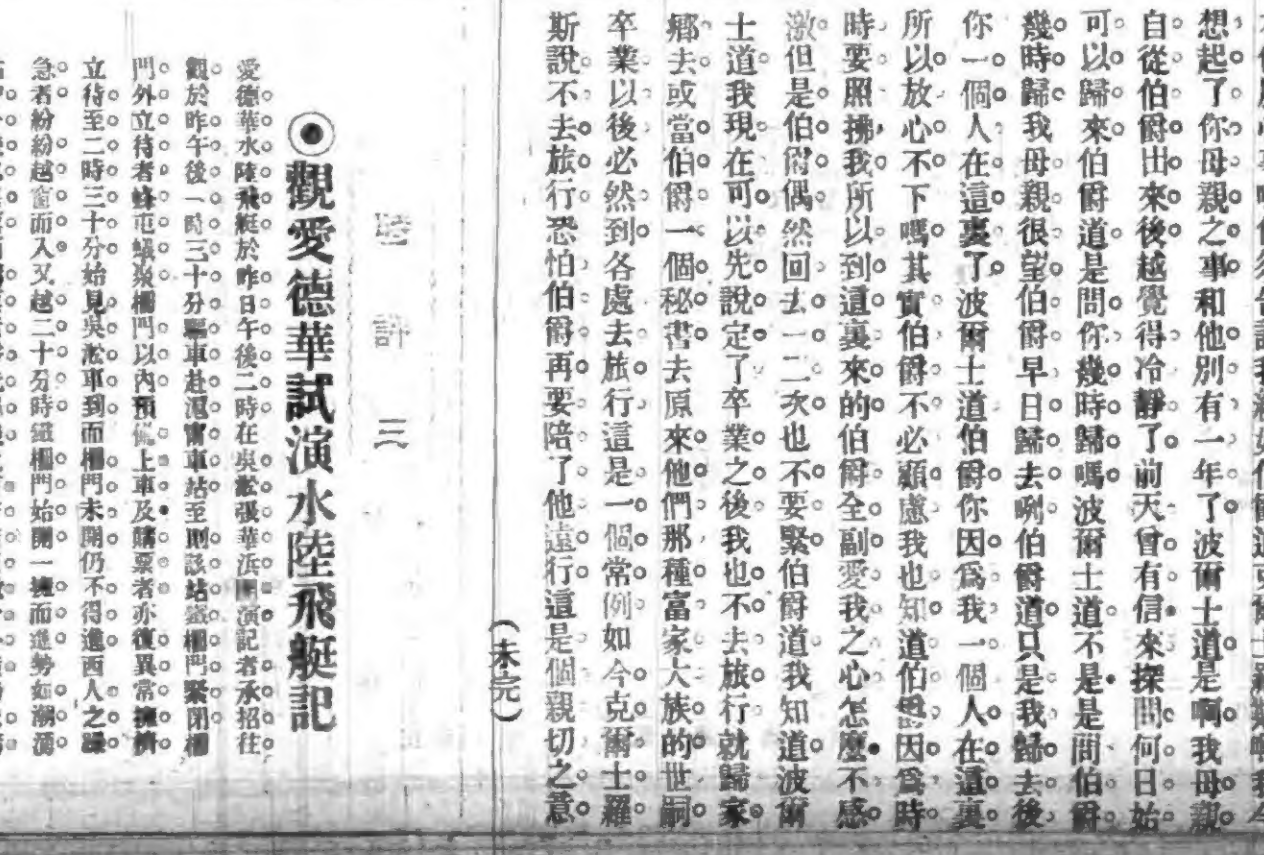 想起了你母親之事和他別有一年了波爾士道是啊我母親
自從伯爵出來後越覺得冷靜了前天曾有信來探問何日始
可以歸來伯爵道是問你幾時歸嗎波爾士道不是是問伯爵
幾時歸我母親很望伯爵早日歸去咧伯爵道只是我歸去後
你一個人在這裏了波爾士道伯爵你因爲我一個人在這裏
所以放心不下嗎其實伯爵不必顧慮我也知道伯爵因爲時
時要照拂我所以到這裏來的伯爵全副愛我之心怎麼不感
激但是伯爵偶然回去一二次也不要緊伯爵道我知道波爾
士道我現在可以先說定了卒業之後我也不去旅行就歸家
鄉去或當伯爵一個秘書去原來他們那種富家大族的世嗣
卒業以後必然到各處去旅行這是一個常例如今克爾士羅
斯說不去旅行恐怕伯爵再要陪了他遠行這是個親切之意
（未完）
評三
◉觀愛德華試演水陸飛艇記
愛德華水陸飛艇於昨日午後二時在吳淞張華浜開演記者承招往
觀於昨午後一時三十分驅車赴滬甯車站至則該站鐵柵門緊閉柵
門外立待者蜂屯蟻聚柵門以內預備上車及購票者亦復異常擁擠
立待至二時三十分始見吳淞車到而柵門未開仍不得進西人之躁
急者紛紛越窗而入又越二十分時鐵柵門始開一擁而進勢如潮湧